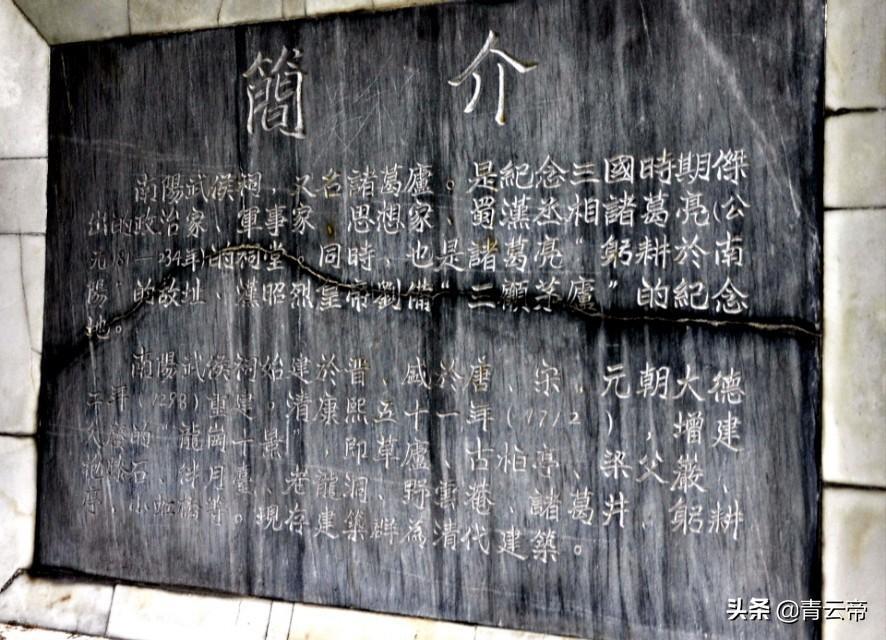 簡介
南陽武侯祠，又名諸葛廬。是紀念三國時期傑
出的政治家、軍事家、思想家、蜀漢丞相諸葛亮(公
元181—234年)的祠堂。同時也是諸葛亮"躬耕於南
陽"的故址、漢昭烈皇帝劉備"三顧茅廬"的紀念
地。
南陽武侯祠始建於晉、盛於唐、宋、元朝大德
二年(1298)重建。清康熙五十一年(1712)，增建、
的"龍崗十景"，即草廬、古柏亭、梁父巖、
抱膝石、伴月臺、老龍洞、野雲庵、諸葛井、躬耕
亭、小虹橋等。現存建築群為清代建築。
头条 @青云帝